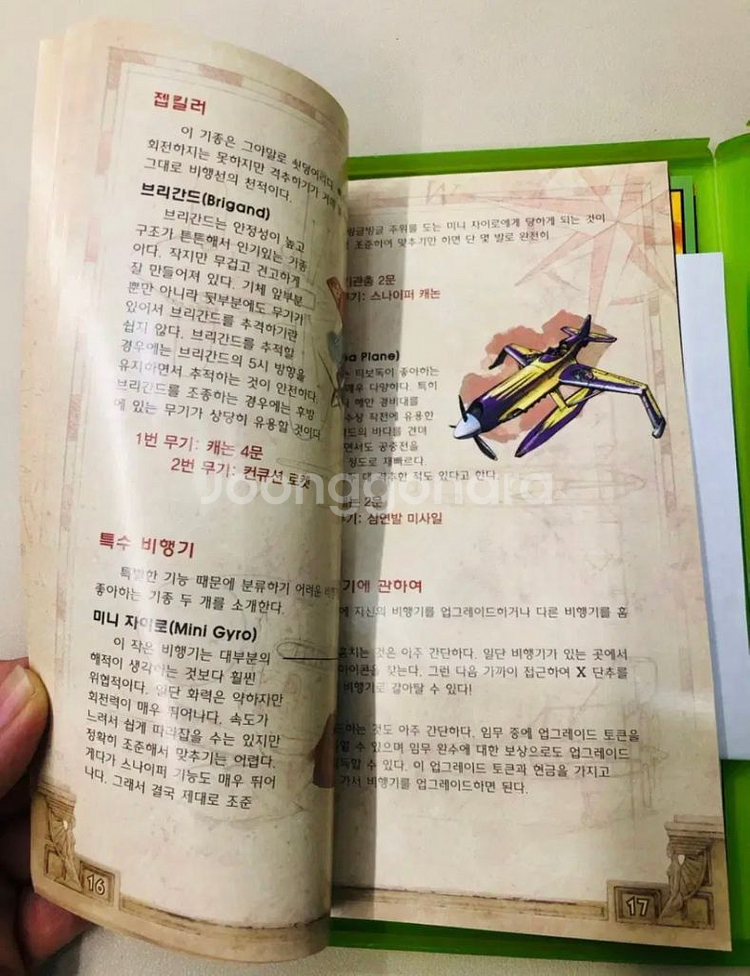 젭킬러
이 기종은 그야말로 헛덩어리다.
회전하지는 못하지만 격추하기가
그대로 비행선의 천적이다.
브리간드(Brigand)
브리간드는 안정성이 높고
구조가 튼튼해서 인기있는 기종
이다. 작지만 무겁고 견고하게
잘 만들어져 있다. 기체 앞부분
뿐만 아니라 뒷부분에도 무기가
있어서 브리간드를 추격하기란
쉽지 않다. 브리간드를 추적할
경우에는 브리간드의 5시 방향을
유지하면서 추적하는 것이 안전하다.
브리간드를 조종하는 경우에는 후방
에 있는 무기가 상당히 유용할 것이다.
1번 무기: 캐논 4문
2번 무기: 컨큐션 로켓
특수 비행기
특별한 기능 때문에 분류하기 어려운
좋아하는 기종 두 개를 소개한다.
미니 자이로(Mini Gyro)
이 작은 비행기는 대부분의
해적이 생각하는 것보다 훨씬
위협적이다. 일단 화력은 약하지만
회전력이 매우 뛰어나다. 속도가
느려서 쉽게 따라잡을 수는 있지만
정확히 조준해서 맞추기는 어렵다.
게다가 스나이퍼 기능도 매우 뛰어
나다. 그래서 결국 제대로 조준
16
주위를 도는 미니 자이로에게 당하게 되는 것이
조준하여 맞추기만 하면 단 몇 발로 완전히
기관총 2문
무기: 스나이퍼 캐논
Plane)
티보독이 좋아하는
매우 다양하다. 특히
해안 경비대를
수상 직전에 유용한
바다를 견뎌
공중전을
정도로 재빠르다.
격추한 적도 있다고 한다.
2문
무기: 심연발 미사일
기에 관하여
자신의 비행기를 업그레이드하거나 다른 비행기를 훔
훔치는 것은 아주 간단하다. 일단 비행기가 있는 곳에서
아이콘을 찾는다. 그런 다음 가까이 접근하여 X 단추를
비행기로 갈아탈 수 있다!
것도 아주 간단하다. 임무 중에 업그레이드 토큰을
수 있으며 임무 완수에 대한 보상으로도 업그레이드
수 있다. 이 업그레이드 토큰과 현금을 가지고
가서 비행기를 업그레이드하면 된다.
17
Joonggonara